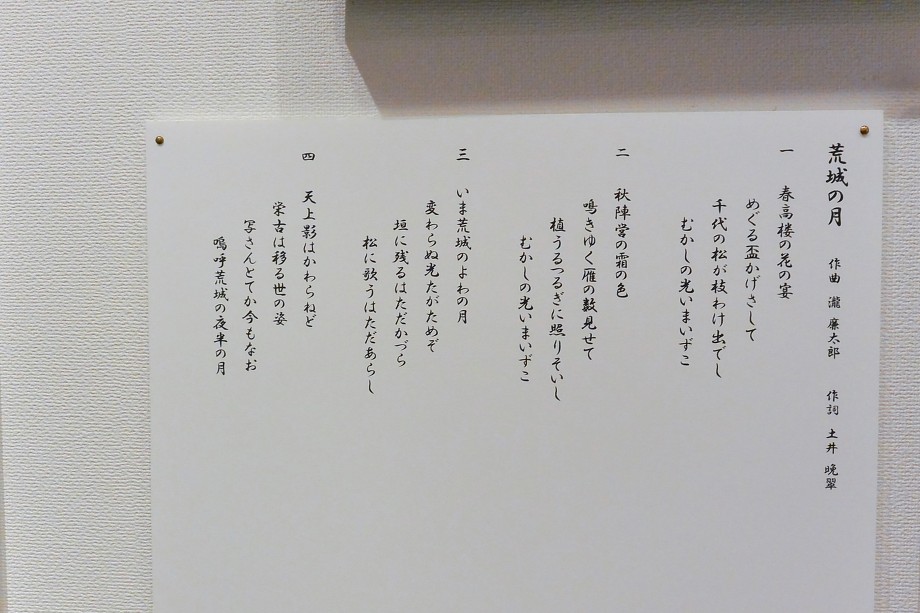 荒城の月 作曲 瀧廉太郎 作詞 土井晩翠
一 春高楼の花の宴
めぐる盃かげさして
千代の松が枝わけ出でし
むかしの光いまいずこ
二 秋陣営の霜の色
鳴きゆく雁の数見せて
植うるつるぎに照りそいし
むかしの光いまいずこ
三 いま荒城のよわの月
変わらぬ光たがためぞ
垣に残るはただかづら
松に歌うはただあらし
四 天上影はかわらねど
栄古は移る世の姿
写さんとてか今もなお
嗚呼荒城の夜半の月